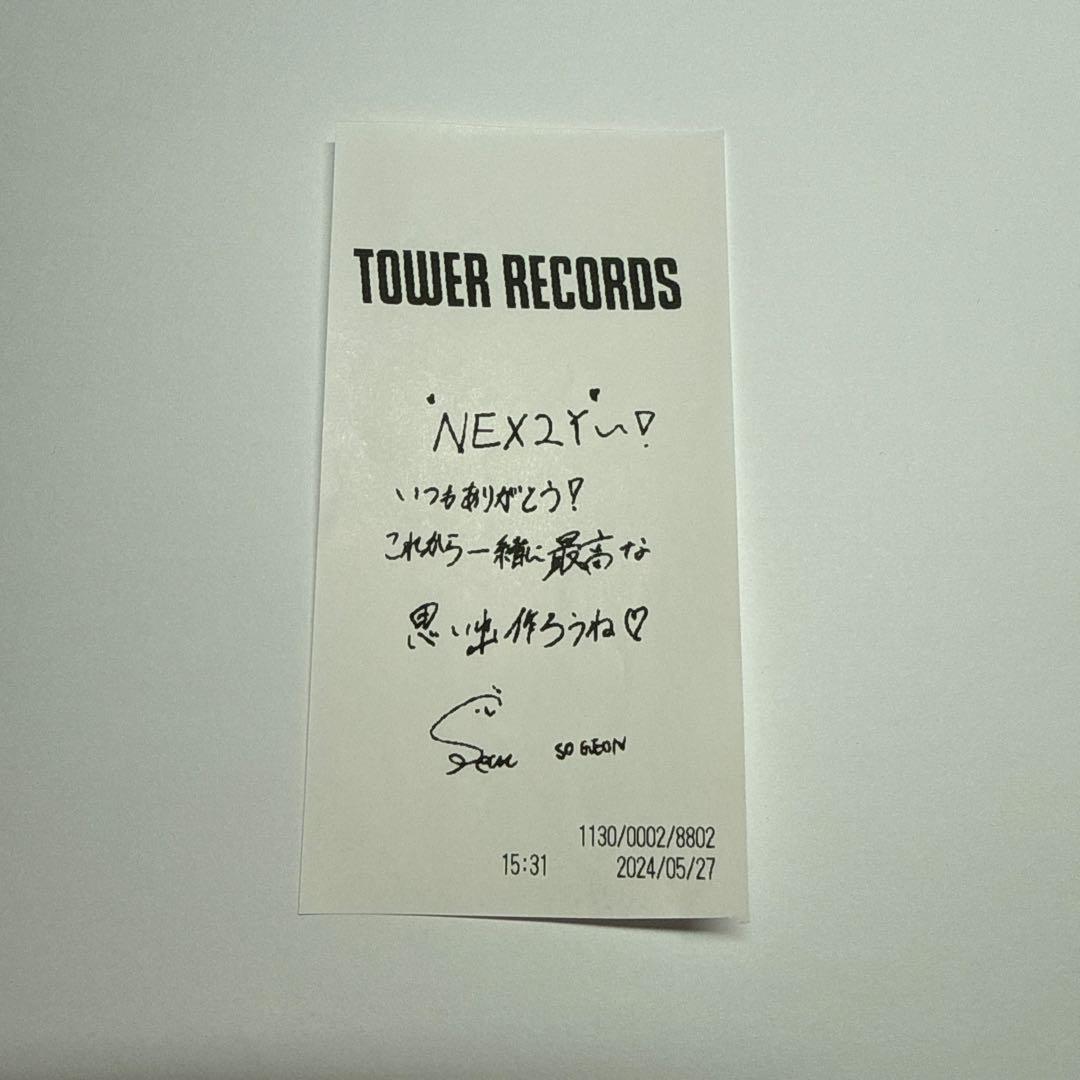 TOWER RECORDS
NEX2Y〜!
いつもありがとう!
これから一緒に最高な
思い出作ろうね♡
SO GEON
1130/0002/8802
15:31 2024/05/27